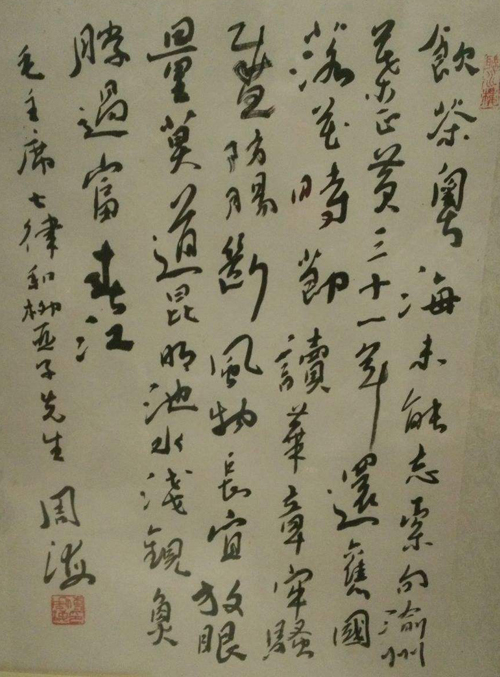 飲茶粵海未能忘索句渝州
葉正黃三十一年還舊國
落花時節讀華章牢騷
太盛防腸斷風物長宜放眼
量莫道昆明池水淺觀魚
勝過富春江
毛主席七律和柳亞子先生 周海